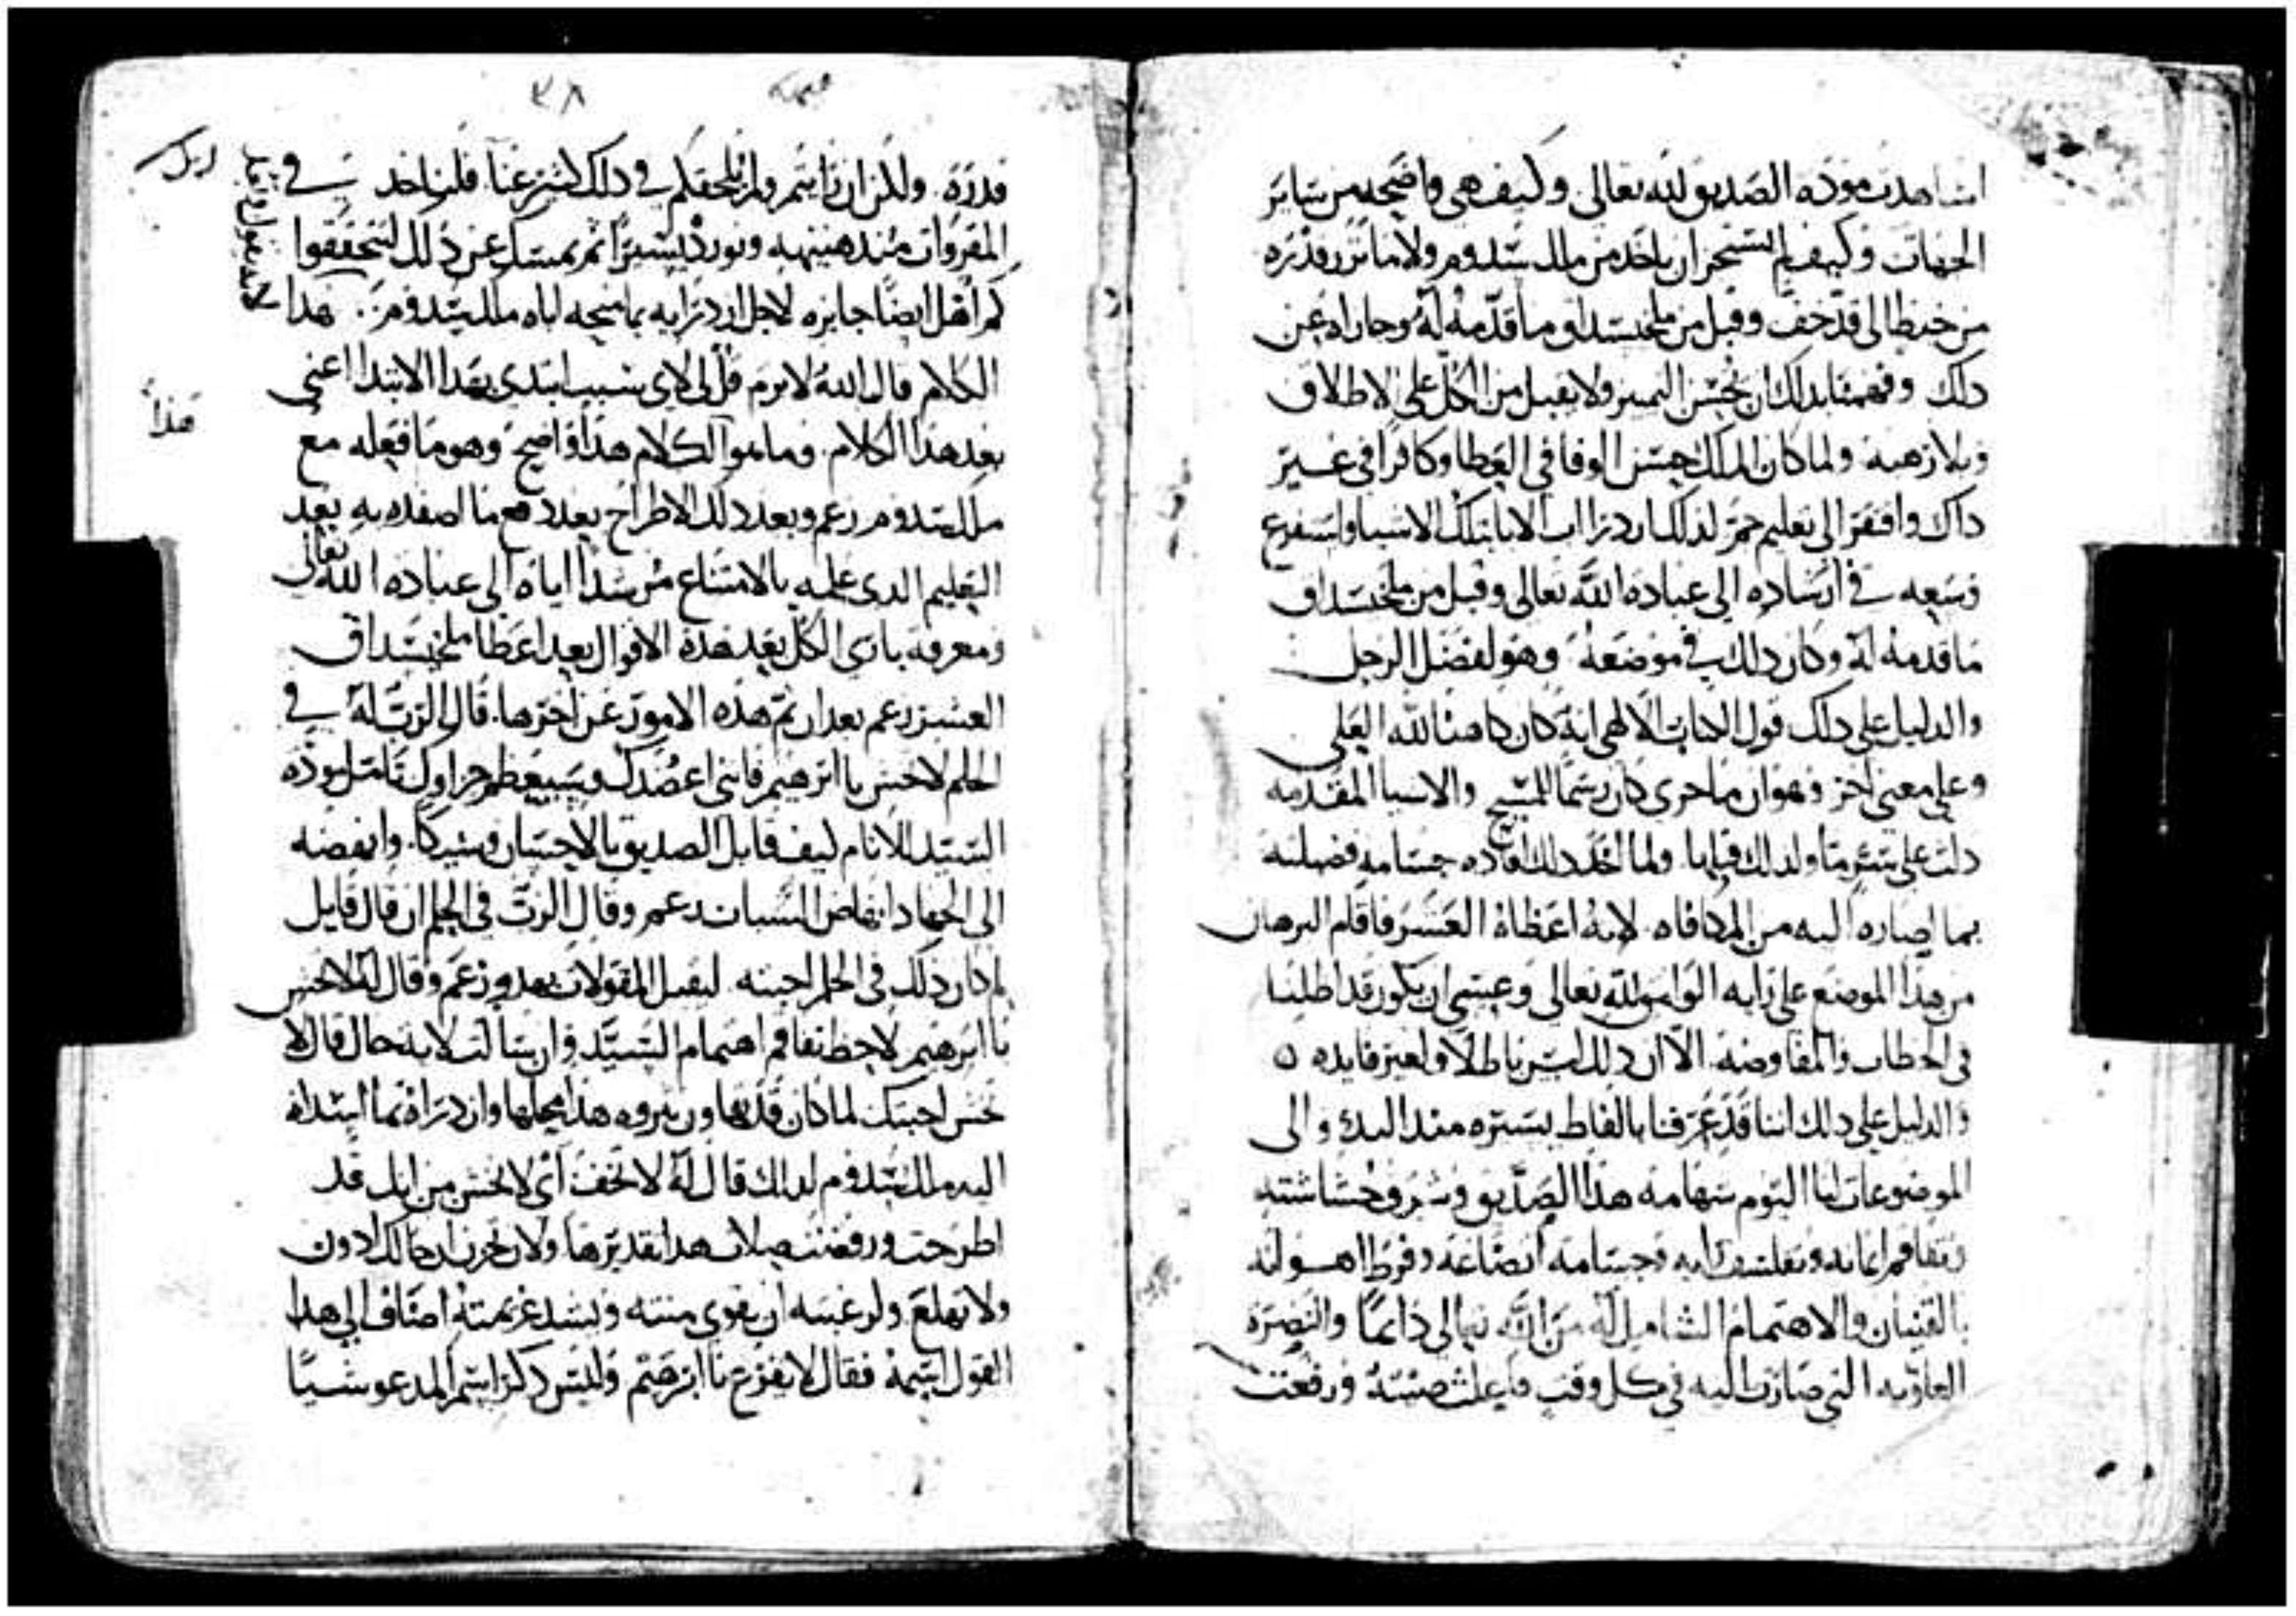 اشاهدت مودة الصديق لله تعالى وكيف هي واضحة من سائر
الجهات وكيف لم يستجز ان ياخذ من ملك سدوم ولا ما نزر قدره
من خيط الى قد خف وقبل من ملخيسداق وما قدمه له وجاراه عن
ذلك وفهمنا بذلك ان نحسن التمييز ولا نقبل من الكل على الاطلاق
ولما كان الملك حسن الوفا في العطا وكافرا في غير
ذاك وافتقر الى تعليم لذلك الاب بتلك الاشيا واستفرغ
وسعه في ارشاده الى عبادة الله تعالى وقبل من ملخيسداق
ما قدمه له وكان ذلك في موضعه وهو لفضل الرجل
والدليل على ذلك قول الكتاب الالهي انه كان كاهنا لله العلي
وعلى معنى اخر وهو ان ما جرى كان رسما للمسيح والاشيا المقدمه
دلت على ما ولذلك قبلها ولما اخذ ذلك افاده جسامة فضيلته
بما اصاره اليه من المكافاه لانه اعطاه العشر فاقام البرهان
من هذا الموضع على رايه الوامق لله تعالى وعسى ان يكون قد اطلنا
في الخطاب والمفاوضه الا ان ذلك ليس باطلا ولغير فايده
والدليل على ذلك اننا قد عرفنا بالفاظ يسيره منذ البدء والى
الموضوعات لنا اليوم شهامة هذا الصديق وشرف
وتفاقم ايمانه رايه وجسامة وفرط
بالقنيان والاهتمام الشامل له من الله تعالى دايما والنصرة
العلويه التي صارت اليه في كل وقت صيته ورفعت
٣٨
قدره ولكن ان رايتم ولم يلحقكم في ذلك عنا فلناخذ في
المقروات منذ هنيهه ونورد يسيرا ثم نمسك عن ذلك لتتحققوا
كم اهل ايضا جايزه لاجل ازدرايه بما منحه اياه ملك سدوم هذا
الكلام قال الله لابرم قل لي لاي سبب ابتدى بهذا الابتدا اعني
بعد هذا الكلام وما هو الكلام هذا واضح وهو ما فعله مع
ملك سدوم زعم وبعد ذلك الاطراح بعد دفع ما انفده به بعد
التعليم الذي علمه بالامتناع مرشدا اياه الى عبادة الله تعالى
ومعرفة بارى الكل بعد هذه الاقوال بعد اعطا ملخيسداق
العشر زعم بعد ان تم هذه الامور عن اخرها قال الرب له في
الحلم لا تخش يا ابرهيم فانني اعضدك وسيعظم جزاوك تامل مودة
السيد للانام كيف قابل الصديق بالاحسان وشيكا وانهضه
الى الجهاد انهاض الشبان زعم وقال الرب في الحلم ان قال قايل
لم كان ذلك في الحلم اجبته ليقبل المقولات بهدو زعم وقال له لا تخش
يا ابرهيم لاحظ تفاقم اهتمام السيد وان سالت لاية حال قال لا
تخش اجبتك لما كان قد تهاون بثروه هذا محلها وازدراه بما اسداه
اليه ملك سدوم لذلك قال له لا تخف اي لا تخش من انك قد
اطرحت ورفضت صلات هذا تقديرها ولا تحزن
ولا تهلع ولرغبته ان يقوي منته ويشد عزيمته اضاف الى هذا
القول اسمه فقال لا تفزع يا ابرهيم وليس ذكر اسم المدعو شيا
هذا